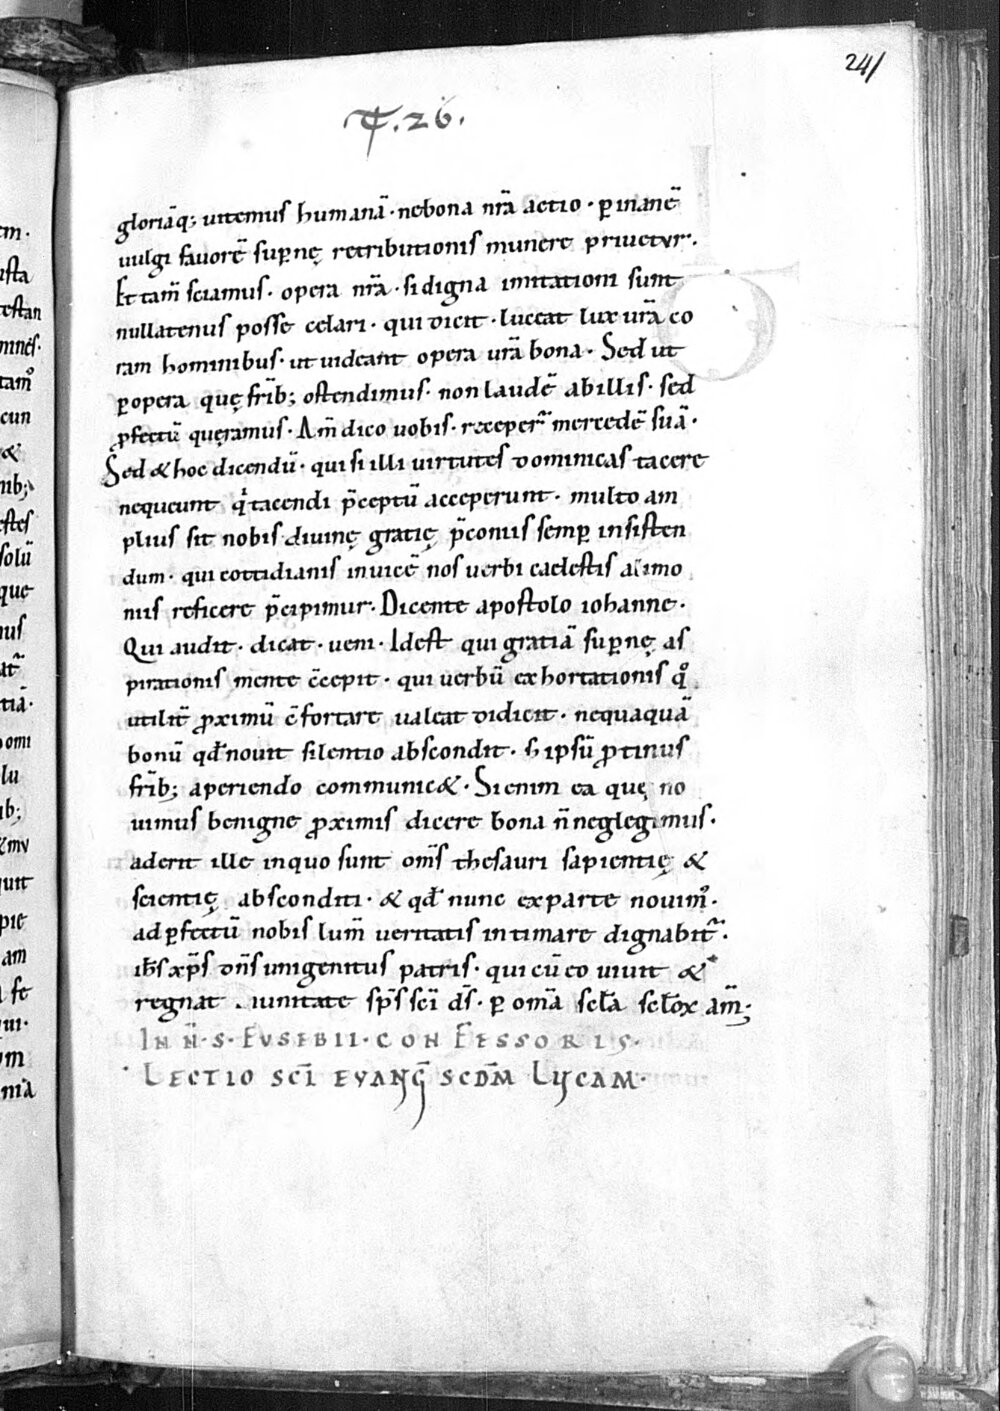 241
T.26.
gloriāq; uitemus humanā · nebona nr̄a actio · ꝑinanē
uulgi fauorē suꝑnę retributionis munere priuetur.
Et tam̄ sciamus · opera nr̄a · sidigna imitationi sunt
nullatenus posse celari · qui dicit · luceat lux ur̄a co
ram hominibus · ut uideant opera ur̄a bona · Sed ut
ꝑopera quę frīb; ostendimus · non laudē abillis · sed
ꝓfectū queramus · Am̄ dico uobis · receper̄ mercedē suā ·
Sed & hoc dicendū · qui si illi uirtutes dominicas tacere
nequeunt qͥ tacendi p̄ceptū acceperunt · multo am
plius sit nobis diuinę gratię p̄coniis semꝑ insisten
dum · qui cottidianis inuicē nos uerbi caelestis alimo
niis reficere p̄cipimur · Dicente apostolo iohanne ·
Qui audit · dicat · ueni · Idest qui gratiā suꝑnę as
pirationis mente c̄cepit · qui uerbū exhortationis qͦ
utilit̄ ꝓximū c̄fortare ualeat didicit · nequaquā
bonū qd̄ nouit silentio abscondit · s; ipsū ꝓtinus
frīb; aperiendo communic& · Si enim ea quę no
uimus benigne ꝓximis dicere bona n̄ neglegimus ·
aderit ille inquo sunt om̄s thesauri sapientię &
scientię absconditi · & qd̄ nunc exparte nouim᷒ ·
ad ꝑfectū nobis lum̄ ueritatis intimare dignabit̄ ·
ih̄s xp̄s dn̄s unigenitus patris · qui cū eo uiuit &
regnat . iunitate sp̄s sc̄i d̄s · ꝑ om̄a sc̄la sc̄lox am̄;
IN N̄ · S · EVSEBII · CONFESSORIS ·
LECTIO SC̄I EVANḠ SCDM̄ LVCAM ·